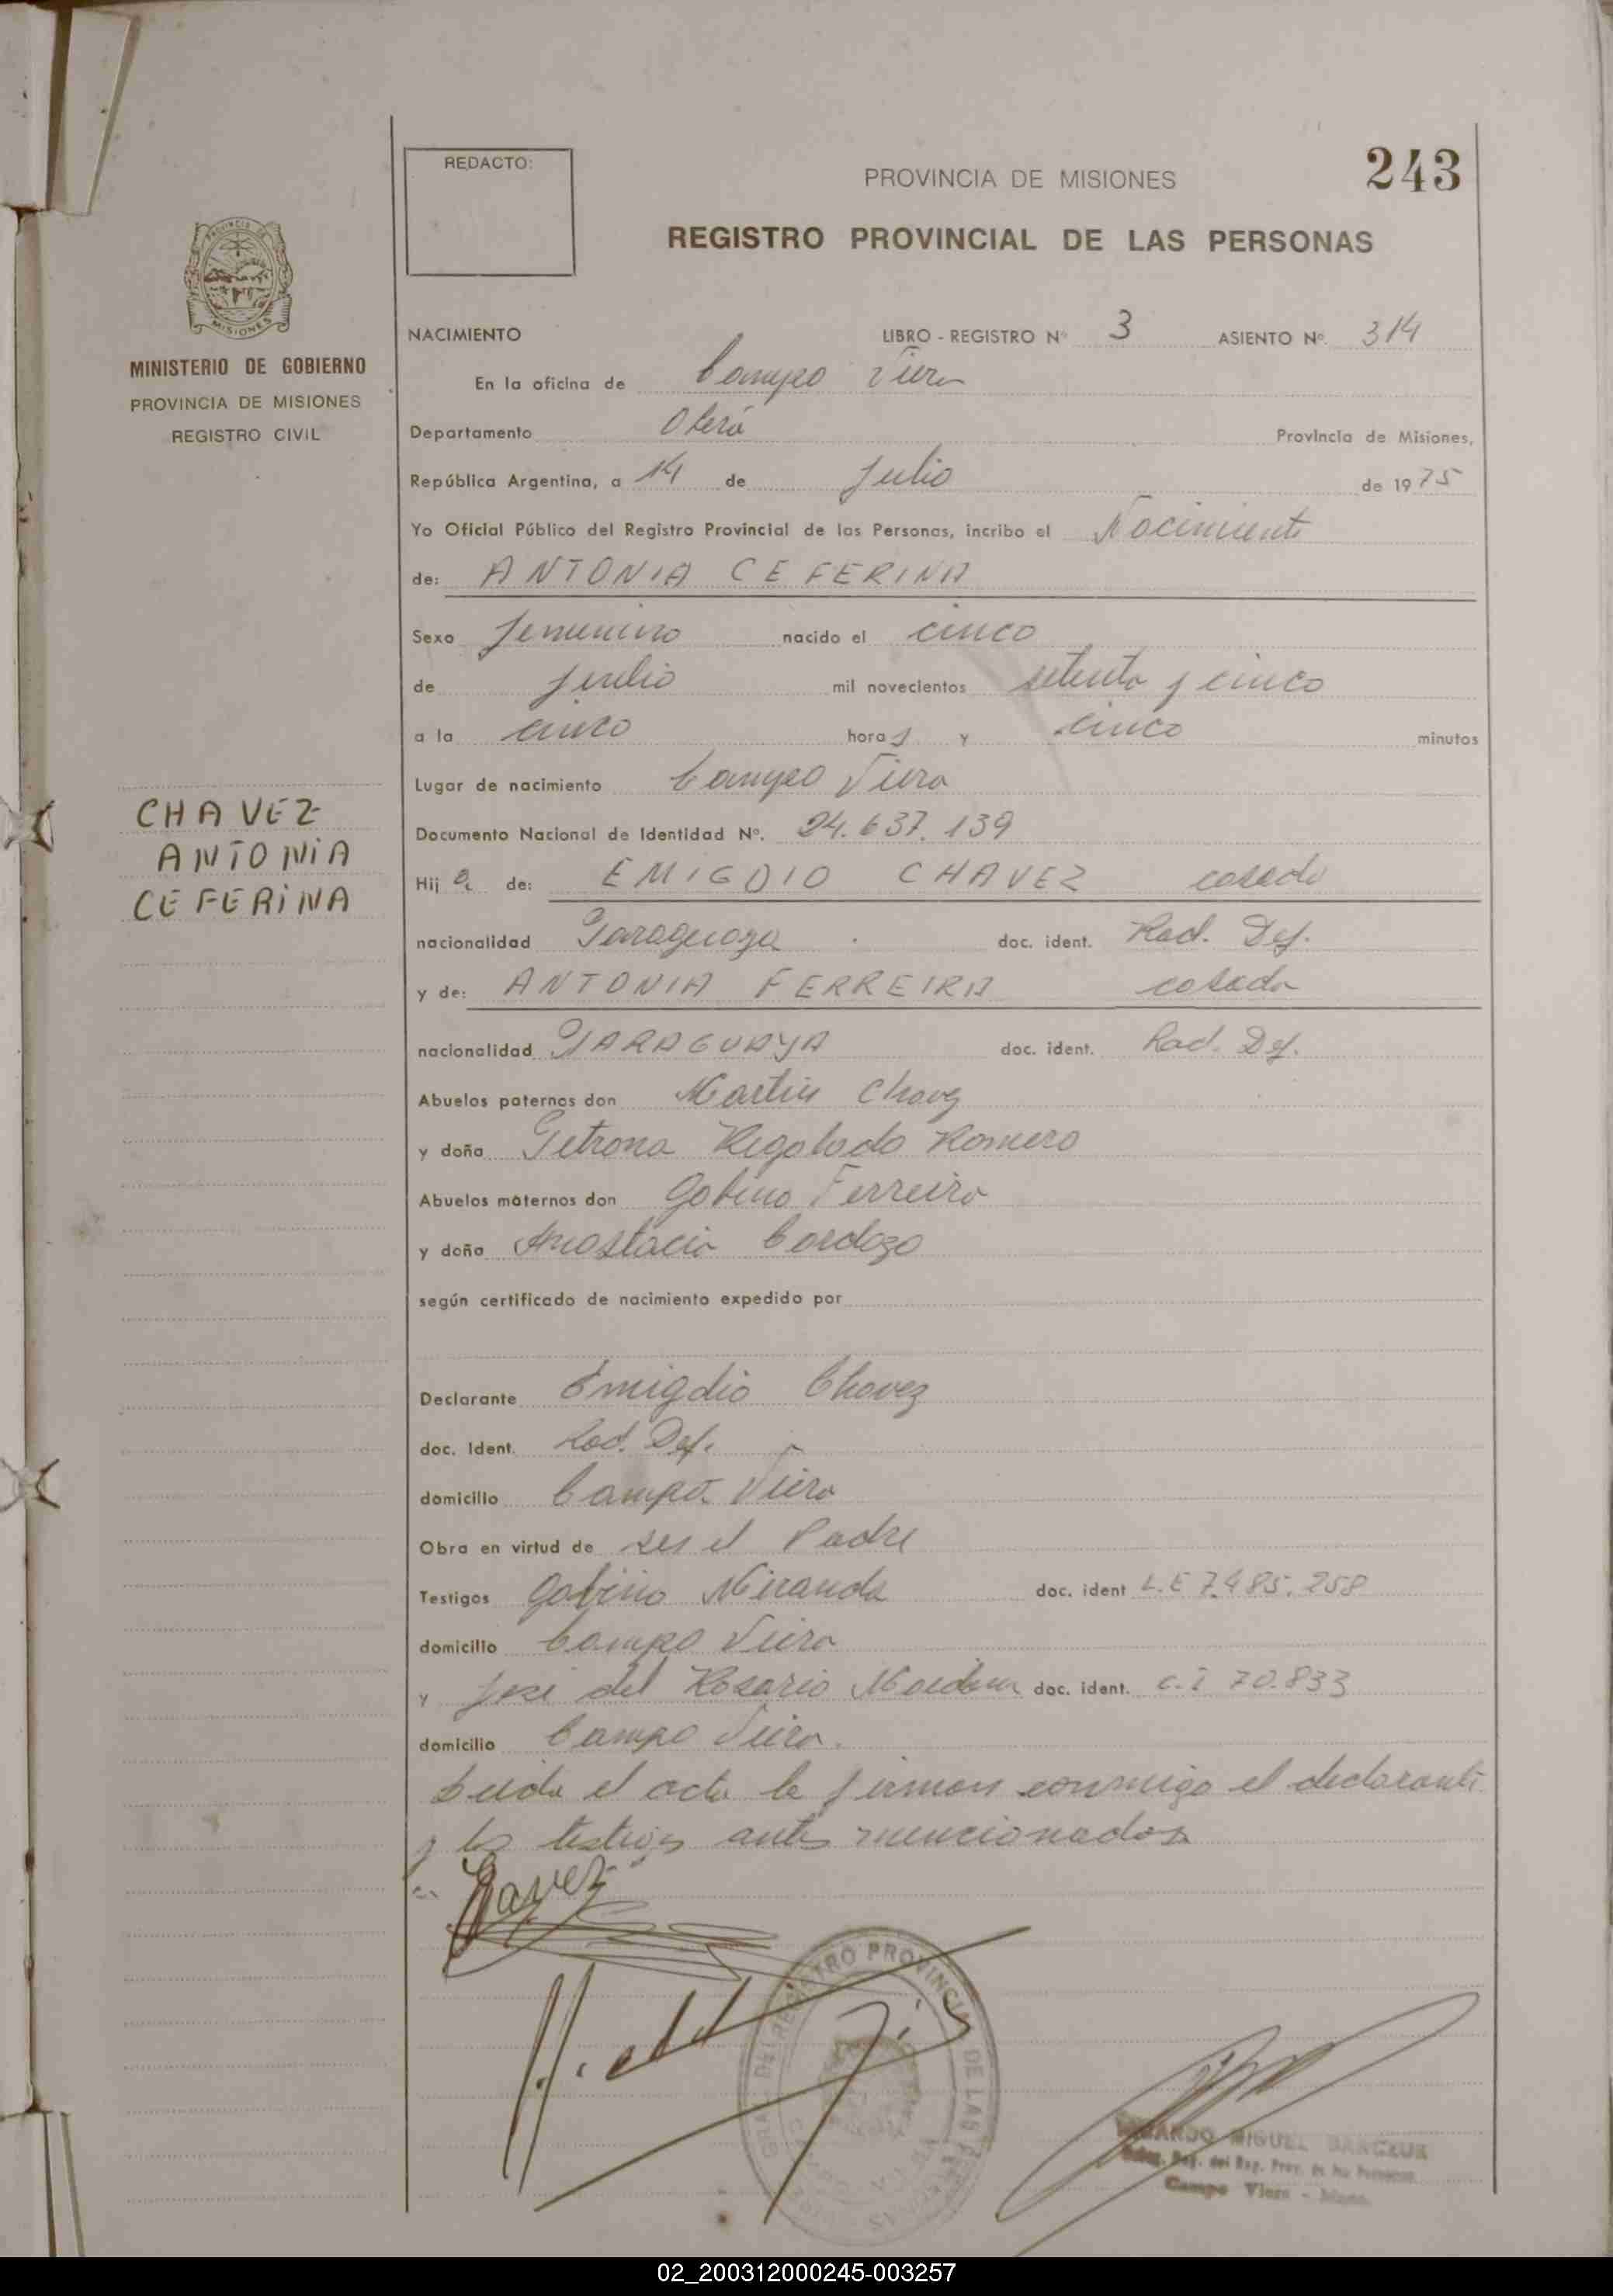 243
REDACTO:
PROVINCIA DE MISIONES
REGISTRO PROVINCIAL DE LAS PERSONAS
MISIONES
MINISTERIO DE GOBIERNO
PROVINCIA DE MISIONES
REGISTRO CIVIL
NACIMIENTO LIBRO - REGISTRO Nº 3 ASIENTO Nº. 314
En la oficina de Campo Viera
Departamento Oberá Provincia de Misiones,
República Argentina, a 14 de Julio de 1975
Yo Oficial Público del Registro Provincial de las Personas, incribo el Nacimiento
de: ANTONIA CEFERINA
Sexo femenino nacido el cinco
de Julio mil novecientos setenta y cinco
a la cinco horas y cinco minutos
Lugar de nacimiento Campo Viera
Documento Nacional de Identidad Nº. 24.637.139
CHAVEZ
ANTONIA
CEFERINA
Hija de: EMIGDIO CHAVEZ casado
nacionalidad Paraguaya doc. ident. Rad. Def.
y de: ANTONIA FERREIRA casada
nacionalidad PARAGUAYA doc. ident. Rad. Def.
Abuelos paternos don Martin Chavez
y doña Petrona Regalada Romero
Abuelos maternos don Gabino Ferreira
y doña Anastacia Cardozo
según certificado de nacimiento expedido por
Declarante Emigdio Chavez
doc. Ident. Rad. Def.
domicilio Campo Viera
Obra en virtud de ser el Padre
Testigos Gabino Miranda doc. ident L.E 7.485.258
domicilio Campo Viera
y Jose del Rosario doc. ident. C.I 70.833
domicilio Campo Viera.
Leida el acta la firman conmigo el declarante
y los testigos antes mencionados
Chavez
REGISTRO PROVINCIAL DE LAS PERSONAS
MIGUEL
Campo Viera
02_200312000245-003257